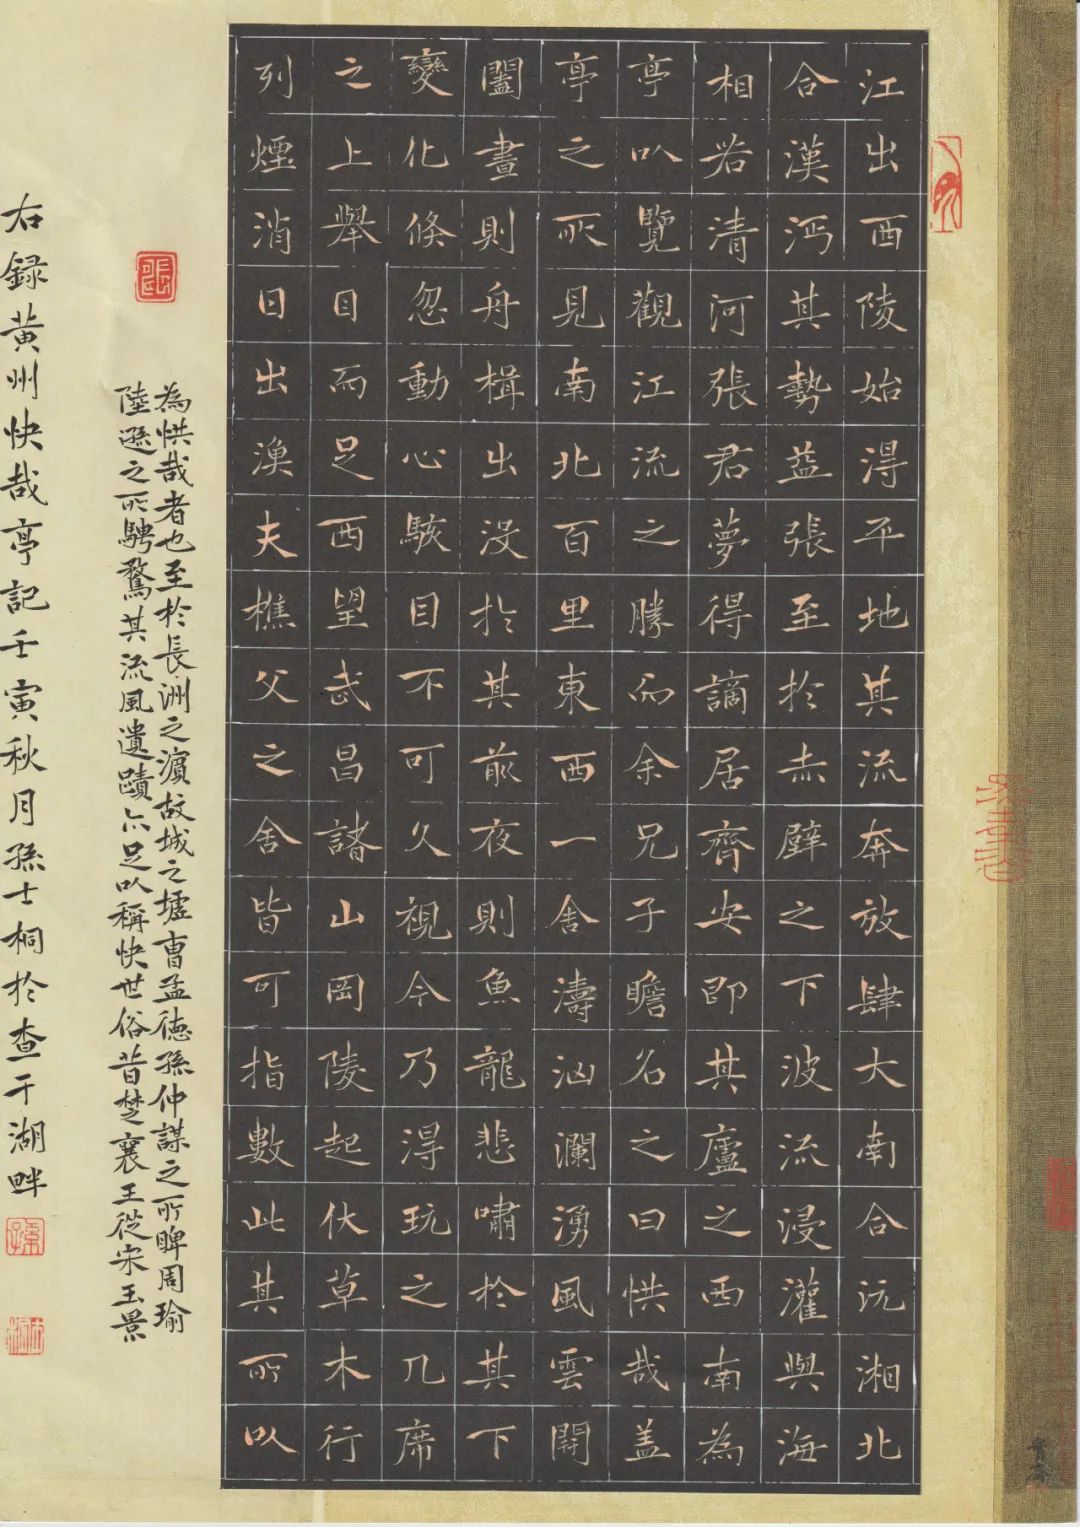 江出西陵始得平地其流奔放肆大南合沅湘北
合漢沔其勢益張至於赤壁之下波流浸灌與海
相若清河張君夢得謫居齊安即其廬之西南為
亭以覽觀江流之勝而余兄子瞻名之曰快哉蓋
亭之所見南北百里東西一舍濤汹瀾湧風雲開
闔晝則舟楫出沒於其前夜則魚龍悲嘯於其下
變化倏忽動心駭目不可久視今乃得玩之几席
之上舉目而足西望武昌諸山岡陵起伏草木行
列煙消日出漁夫樵父之舍皆可指數此其所以
為快哉者也至於長洲之濱故城之墟曹孟德孫仲謀之所睥周瑜
陸遜之所騁騖其流風遺蹟亦足以稱快世俗昔楚襄王從宋玉景
右錄黃州快哉亭記壬寅秋月孫士桐於查干湖畔